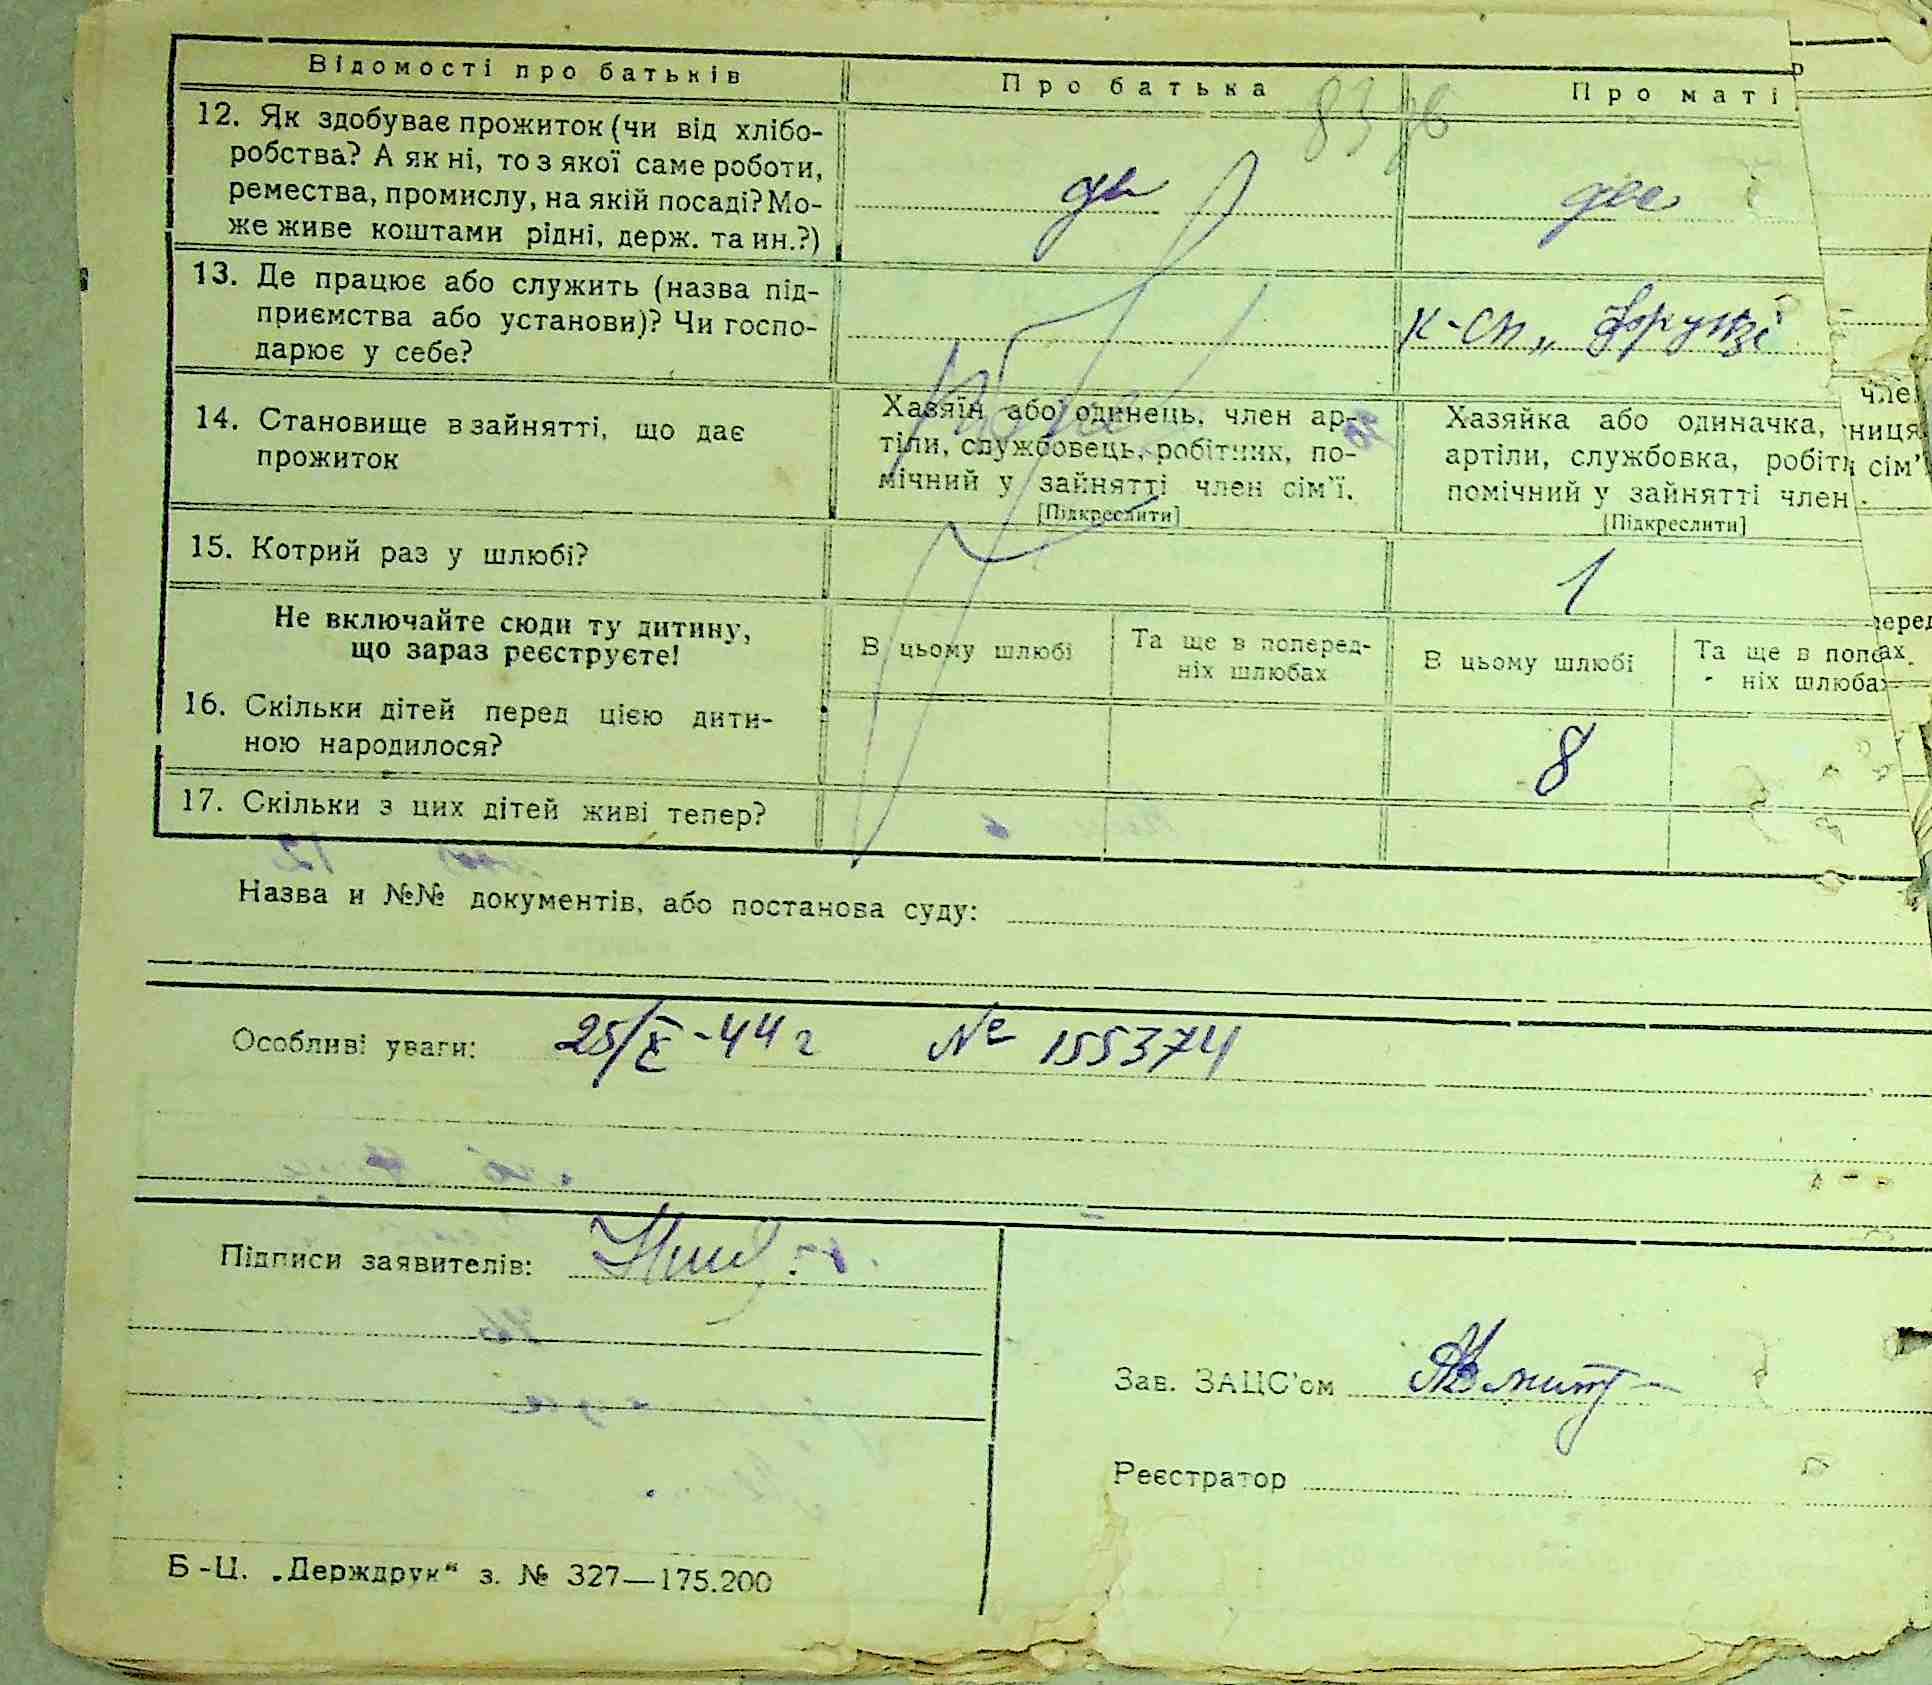 Відомості про батьків
Про батька
Про маті
12. Як здобуває прожиток (чи від хлібо-
робства? А як ні, то з якої саме роботи,
ремества, промислу, на якій посаді? Мо-
же живе коштами рідні, держ. та ин.?)
13. Де працює або служить (назва під-
приємства або установи)? Чи госпо-
дарює у себе?
к-сп „Фрунзе"
14. Становище в зайнятті, що дає
прожиток
Хазяїн або одинець, член ар-
тіли, службовець, робітник, по-
мічний у зайнятті член сім'ї.
[Підкреслити]
Хазяйка або одиначка,
артіли, службовка, робітн
помічний у зайнятті член
[Підкреслити]
15. Котрий раз у шлюбі?
1
Не включайте сюди ту дитину,
що зараз реєструєте!
В цьому шлюбі
Та ще в поперед-
ніх шлюбах
В цьому шлюбі
Та ще в попе
ніх шлюба
16. Скільки дітей перед цією дити-
ною народилося?
8
17. Скільки з цих дітей живі тепер?
Назва и №№ документів, або постанова суду:
Особливі уваги: 25/X-44 г № 155374
Підписи заявителів:
Зав. ЗАЦС'ом
Реєстратор
Б-Ц. „Держдрук“ з. № 327—175.200